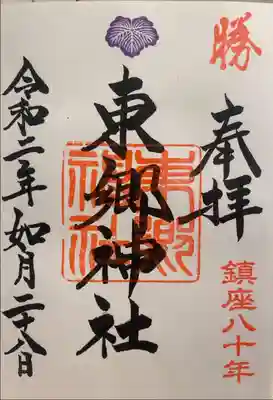 勝
奉拝
鎮座八十年
東郷神社
東郷神社
令和二年如月二十八日